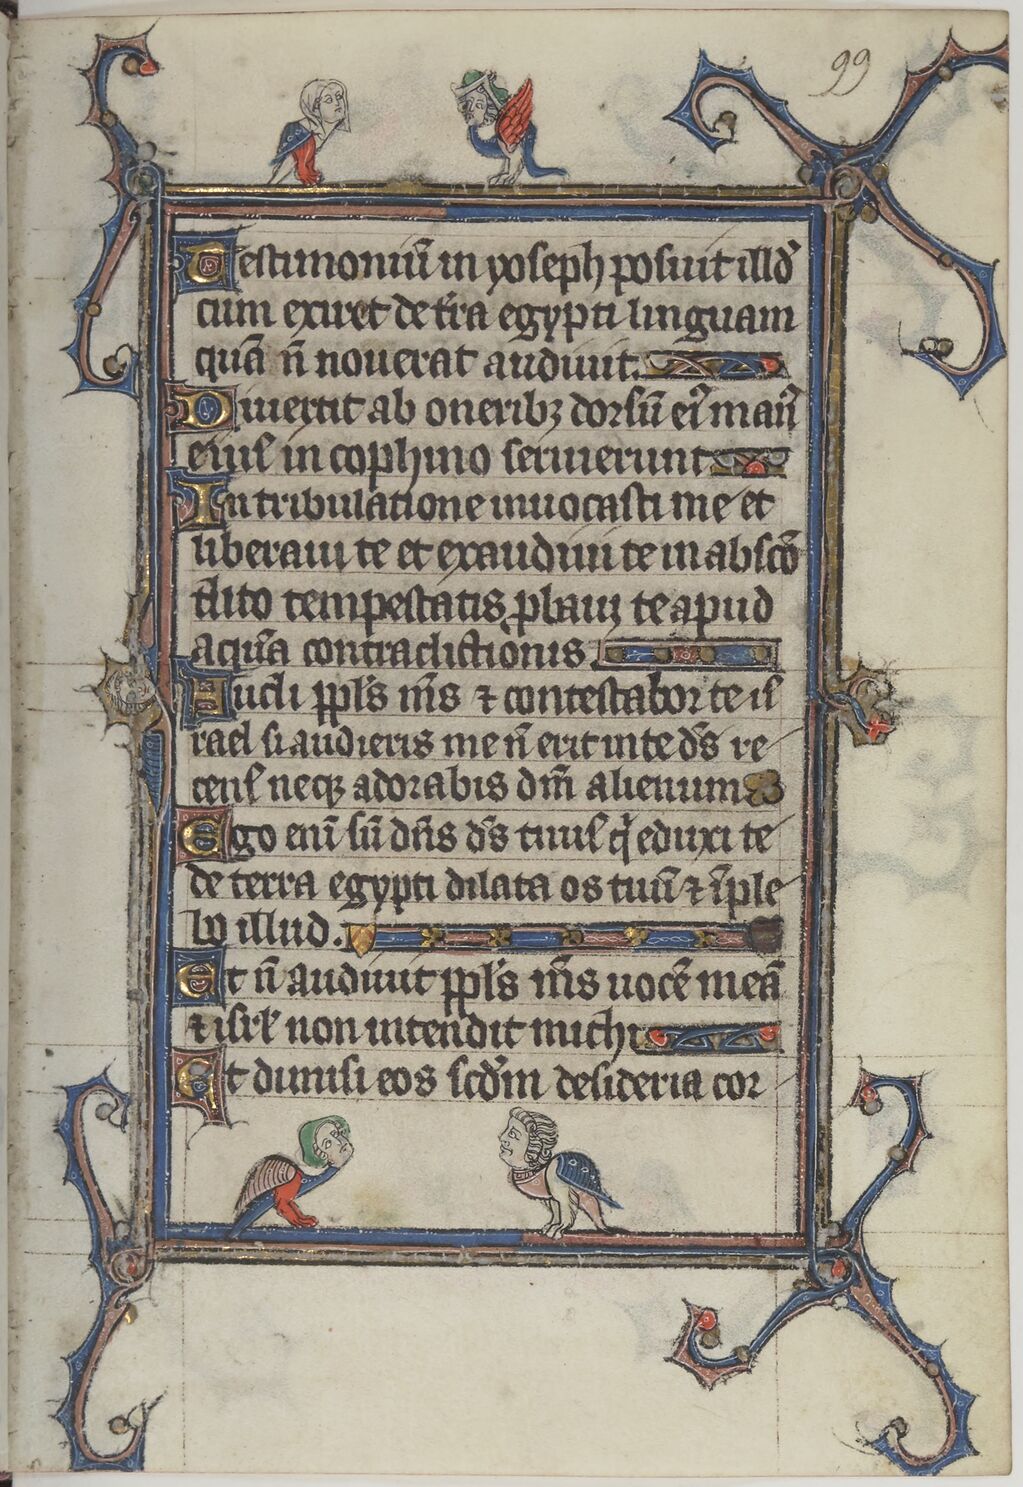 99
Testimoniū in yoseph posuit illđ
cum exiret de tr̄a egypti linguam
quā n̄ nouerat audiuit.
Diuertit ab oneribꝫ dorsū eiꝰ manꝰ
eius in cophino seruierunt
In tribulatione inuocasti me et
liberaui te et exaudiui te in abscō
dito tempestatis ꝓbaui te apud
aquā contradictionis.
Audi ppl̄s m̄s ⁊ contestabor te is
rael si audieris me n̄ erit in te ds̄ re
cens neqꝫ adorabis dm̄ alienum
Ego enī sū dn̄s ds̄ tuus q̄ eduxi te
de terra egypti dilata os tuū ⁊ īple
bo illud.
Et n̄ audiuit ppl̄s m̄s uocē meā
⁊ isrl̄ non intendit michi
Et dimisi eos scđm desideria cor